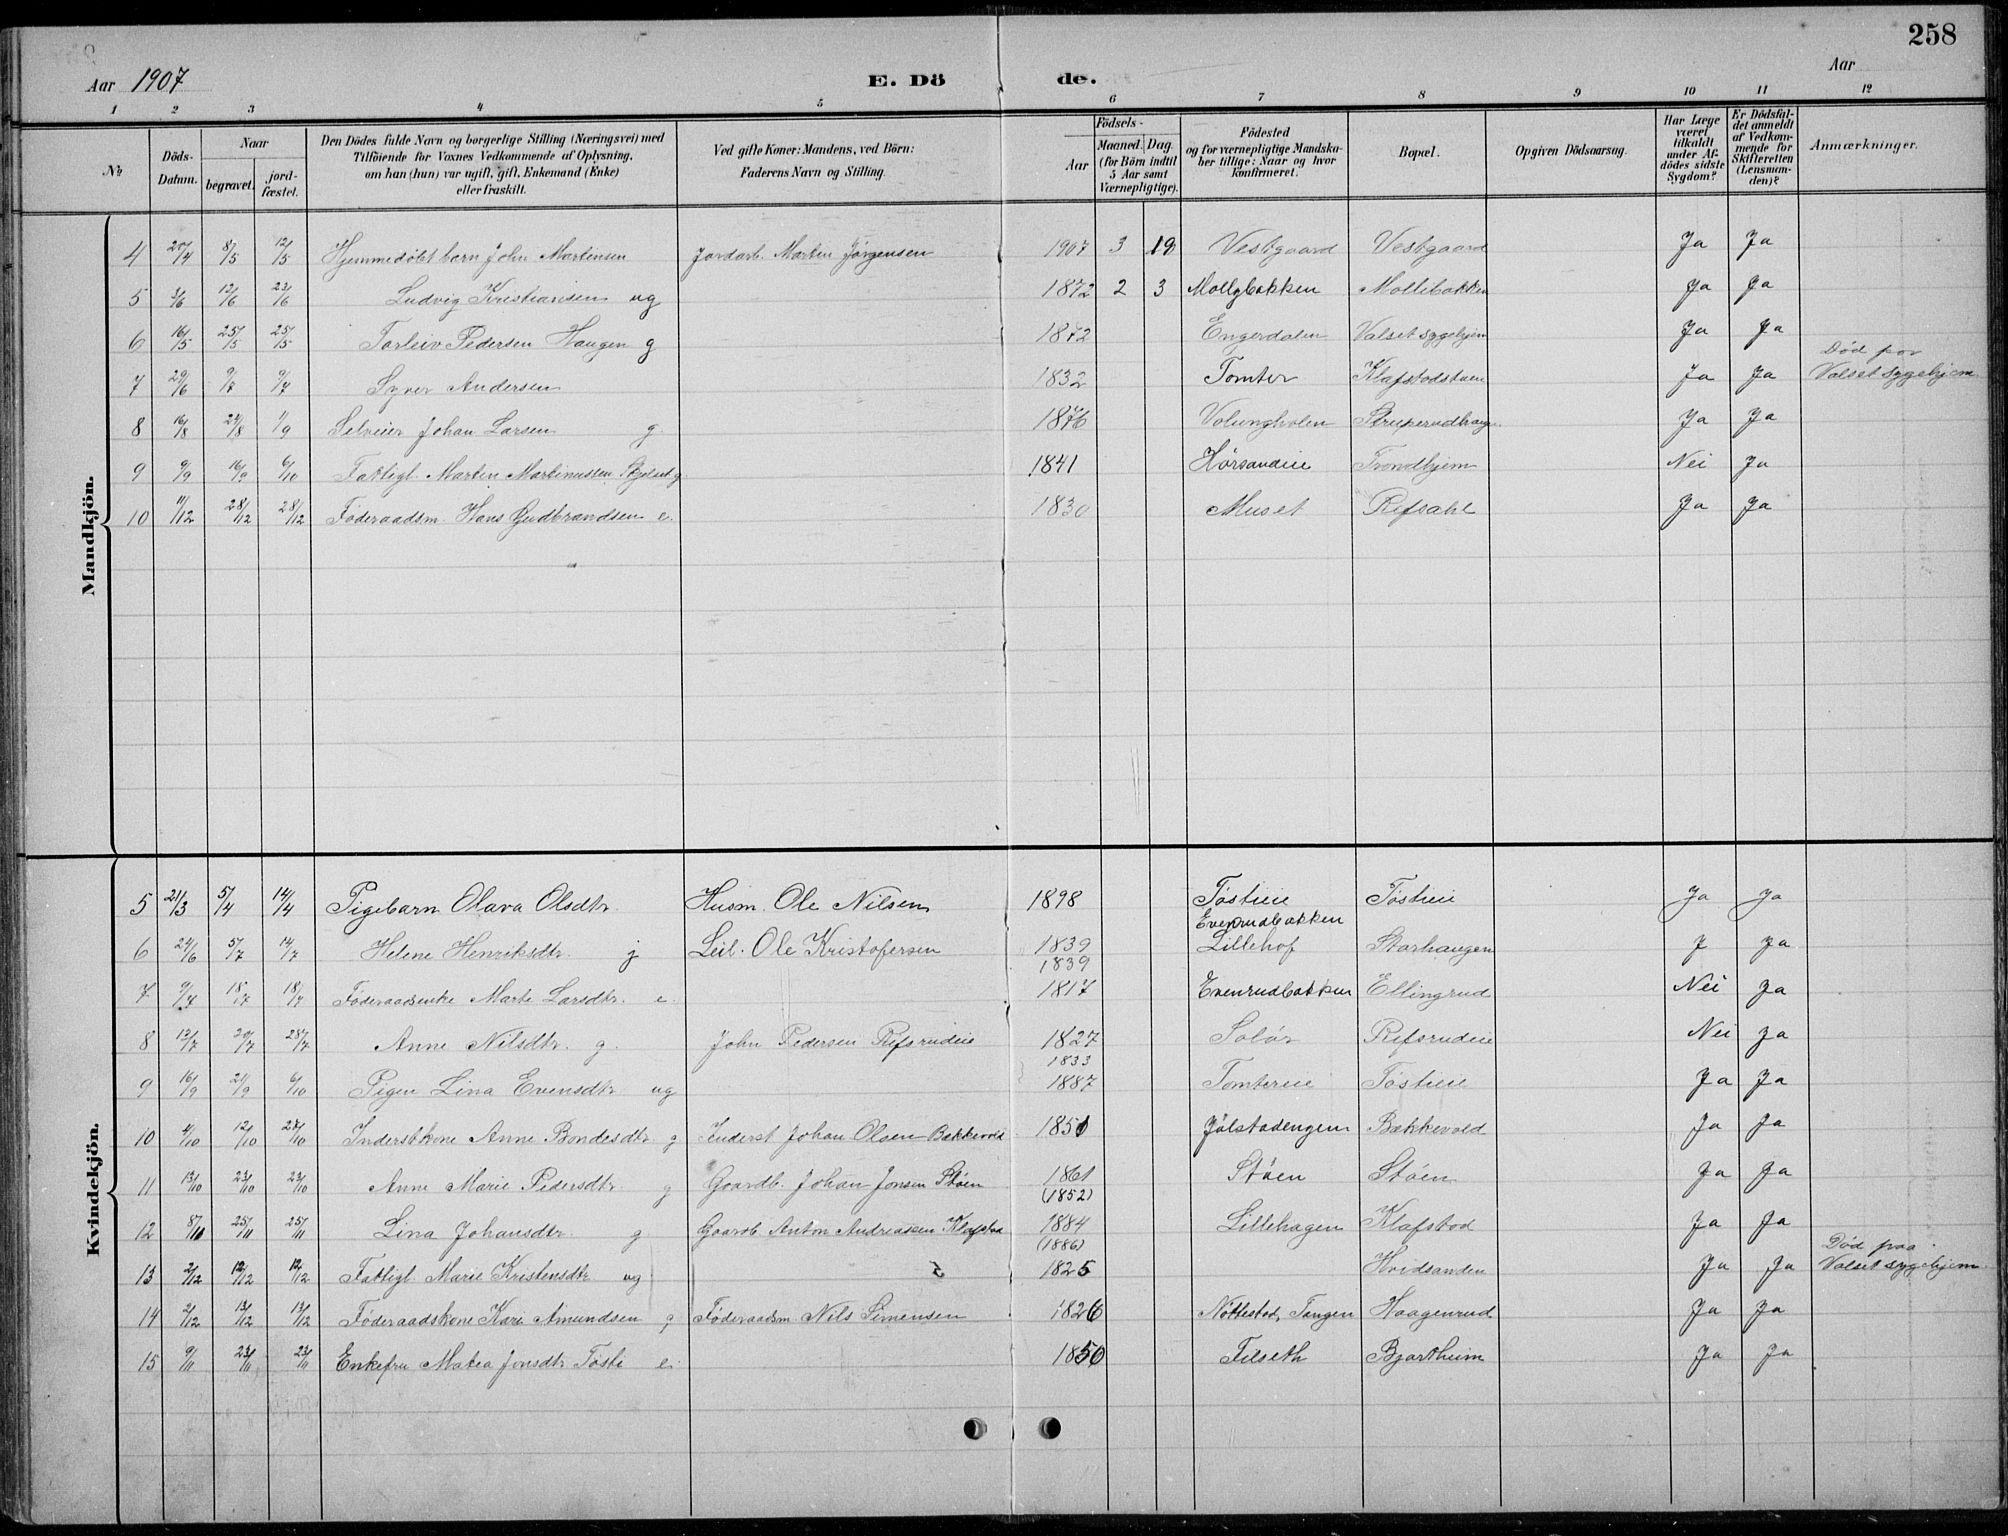 258
Aar 1907 E. Dö de. Aar
1 2 3 4 5 6 7 8 9 10 11 12
No
Döds-Datum.
Naar begravet. jord-fæstet.
Den Dödes fulde Navn og borgerlige Stilling (Næringsvei) med Tilföiende for Voxnes Vedkommende af Oplysning, om han (hun) var ugift, gift, Enkemand (Enke) eller fraskilt.
Ved gifte Koner: Mandens, ved Börn: Faderens Navn og Stilling.
Födsels-
Aar Maaned. Dag. (for Börn indtil 5 Aar samt Værnepligtige).
Födested og for værnepligtige Mandska-ber tillige: Naar og hvor konfirmeret.
Bopæl.
Opgiven Dödsaarsag.
Har Læge været tilkaldt under Af-dödes sidste Sygdom?
Er Dödsfal-det anmeldt af Vedkom-mende for Skifteretten (Lensman-den)?
Anmærkninger.
Mandkjön.
4 20/4 8/5 12/5 Hjemmedøbt barn John Martinsen Jordarb. Martin Jørgensen 1907 3 19 Vestgaard Vestgaard Ja Ja
5 3/6 12/6 23/6 Ludvig Kristiansen ug 1872 2 3 Mollybakken Mollebakken Ja Ja
6 16/5 25/5 25/5 Torleiv Pedersen Haugen g 1872 Engerdalen Valset sygehjem Ja Ja
7 29/6 9/7 Syver Andersen 1832 Tomter Klafstadstuen Ja Ja Død paa Valset sygehjem
8 16/8 24/8 1/9 Selveier Johan Larsen g. 1876 Volungholen Ja Ja
9 9/9 16/9 6/10 Fattigl. Martin Martinussen g. 1841 Hørsandeie Trondhjem Nei Ja
10 11/12 28/12 28/12 Føderaadsm. Hans Gudbrandsen e. 1830 Muset Refsahl Ja Ja
Kvindekjön.
5 21/3 5/4 14/4 Pigebarn Olava Olsdtr. Husm. Ole Nilsen 1898 Tøstieie Tøstieie Ja Ja
Evenrudbakken
6 24/6 5/7 14/7 Helene Henriksdtr. g Leil. Ole Kristofersen 1839 Lillehof Storhaugen J Ja
1839
7 9/7 18/7 18/7 Føderaadsenke Marte Larsdtr. e. 1817 Evenrudbakken Ellingrud Nei Ja
8 12/7 20/7 28/7 Anne Nilsdtr. g. John Pedersen Refsrudeie 1827 Solør Refsrudeie Nei Ja
1833
9 16/9 21/9 6/10 Pigen Lina Evensdtr ug 1887 Tomtereie Tøstieie Ja Ja
10 4/10 12/10 27/10 Inderstkone Anne Bondesdtr g Inderst Johan Olsen Bækkevold 1851 Jølstadengen Bækkevold Ja Ja
11 13/10 23/10 23/10 Anne Marie Pedersdtr. g Gaardb. Johan Jonsen Støen 1861 Støen Støen Ja Ja
(1852)
12 8/11 25/11 25/11 Lina Johansdtr. g Gaardb. Anton Andreassen Klafstad 1884 Lillehagen Klafstad Ja Ja
(1886)
13 2/12 12/12 12/12 Fattigl. Marie Kristensdtr ug 1825 Hvidsanden Ja Ja Død paa Valset sygehjem
14 2/12 13/12 13/12 Føderaadskone Kari Amundsen g Føderaadsm Nils Simensen 1826 Nøttestad, Tangen Haagenrud Ja Ja
15 9/11 23/11 23/11 Enkefru Matea Jonsdtr Tøsti e. 1850 Filseth Bjartheim Ja Ja